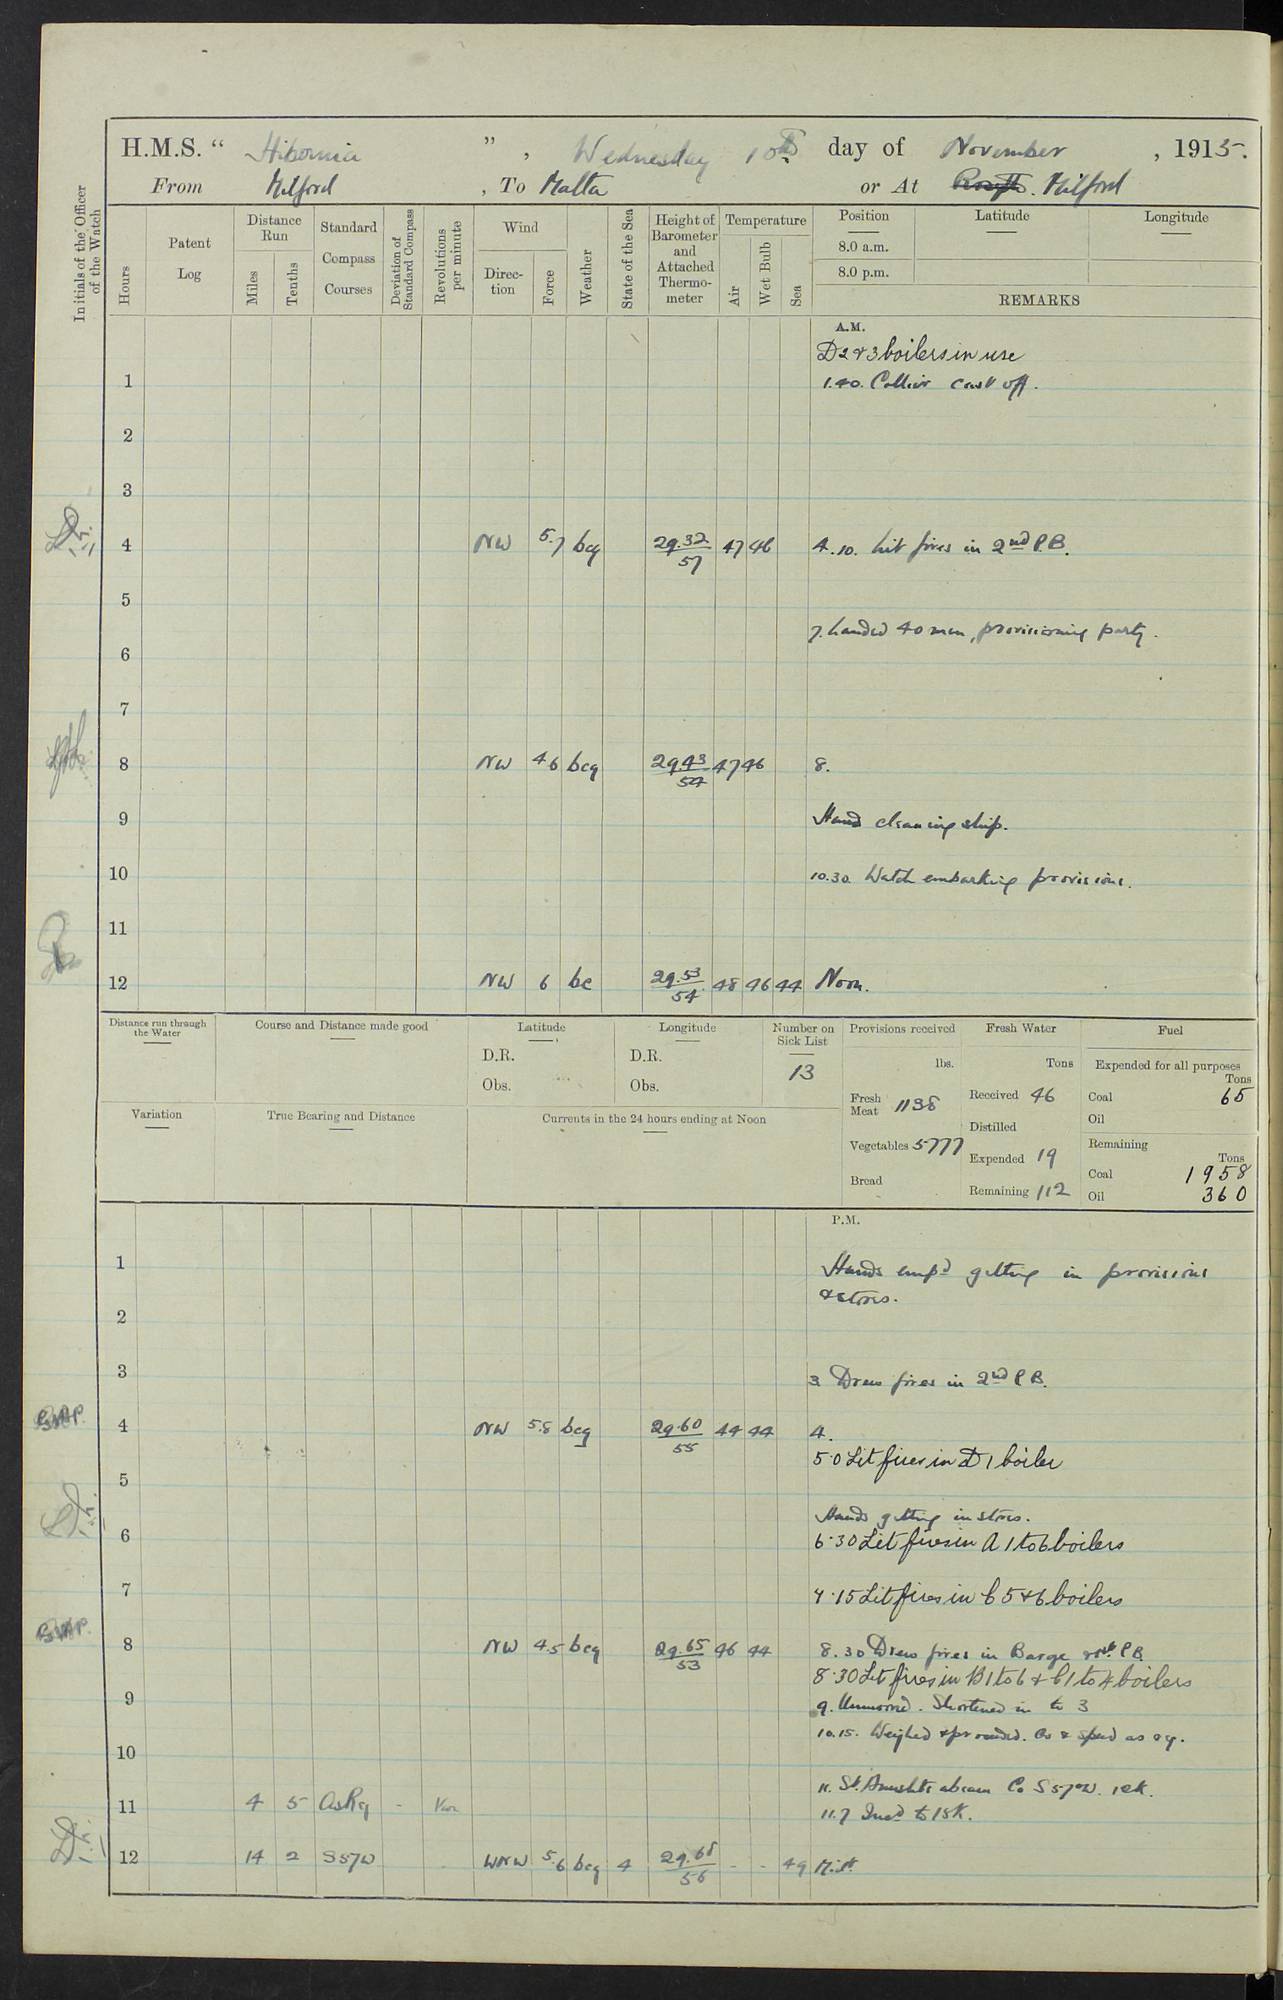 H.M.S. “ Hibernia ” , Wednesday 10th day of November , 1915.
From Milford , To Malta or At Rosyth. Milford
Initials of the Officer of the Watch
Hours
Patent Log
Distance Run
Miles
Tenths
Standard Compass Courses
Deviation of Standard Compass
Revolutions per minute
Wind
Direction
Force
Weather
State of the Sea
Height of Barometer and Attached Thermometer
Temperature
Air
Wet Bulb
Sea
Position
8.0 a.m.
8.0 p.m.
Latitude
Longitude
REMARKS
A.M.
D2 & 3 boilers in use
1
1.40. Collier cast off.
2
3
4 NW 5.7 bcq 29.32/57 47 46 4.10. Lit fires in 2nd P.B.
5
7. Landed 40 men, provisioning party.
6
7
8 NW 4.6 bcq 29.43/54 47 46 8.
9 Hands cleaning ship.
10 10.30 Watch embarking provisions.
11
12 NW 6 bc 29.53/54 48 46 44 Noon.
Distance run through the Water
Course and Distance made good
Latitude
D.R.
Obs.
Longitude
D.R.
Obs.
Number on Sick List
13
Provisions received
lbs.
Fresh Meat 1138
Vegetables 5777
Bread
Fresh Water
Tons
Received 46
Distilled
Expended 19
Remaining 112
Fuel
Expended for all purposes
Tons
Coal 65
Oil
Remaining
Tons
Coal 1958
Oil 360
Variation
True Bearing and Distance
Currents in the 24 hours ending at Noon
P.M.
1 Hands empd getting in provisions
& stores.
2
3 3. Drew fires in 2nd P.B.
4 NW 5.8 bcq 29.60/55 44 44 4.
5.0 Lit fires in D1 boiler
5
Hands getting in stores.
6 6.30 Lit fires in A 1 to 6 boilers
7 7.15 Lit fires in C 5 & 6 boilers
8 NW 4.5 bcq 29.65/53 46 44 8.30 Drew fires in Barge & P.B.
8.30 Lit fires in B1 to 6 & C1 to 4 boilers
9 9. Unmoored. Shortened in to 3
10.15. Weighed & proceeded. Co & speed as rq.
10
11. St. Anns lts abeam Co S57W. 12k.
11 4 5 As Rq - Var
11.7 Incd to 15K.
12 14 2 S57W WNW 5.6 bcq 4 29.68/56 - - 49 Midt.